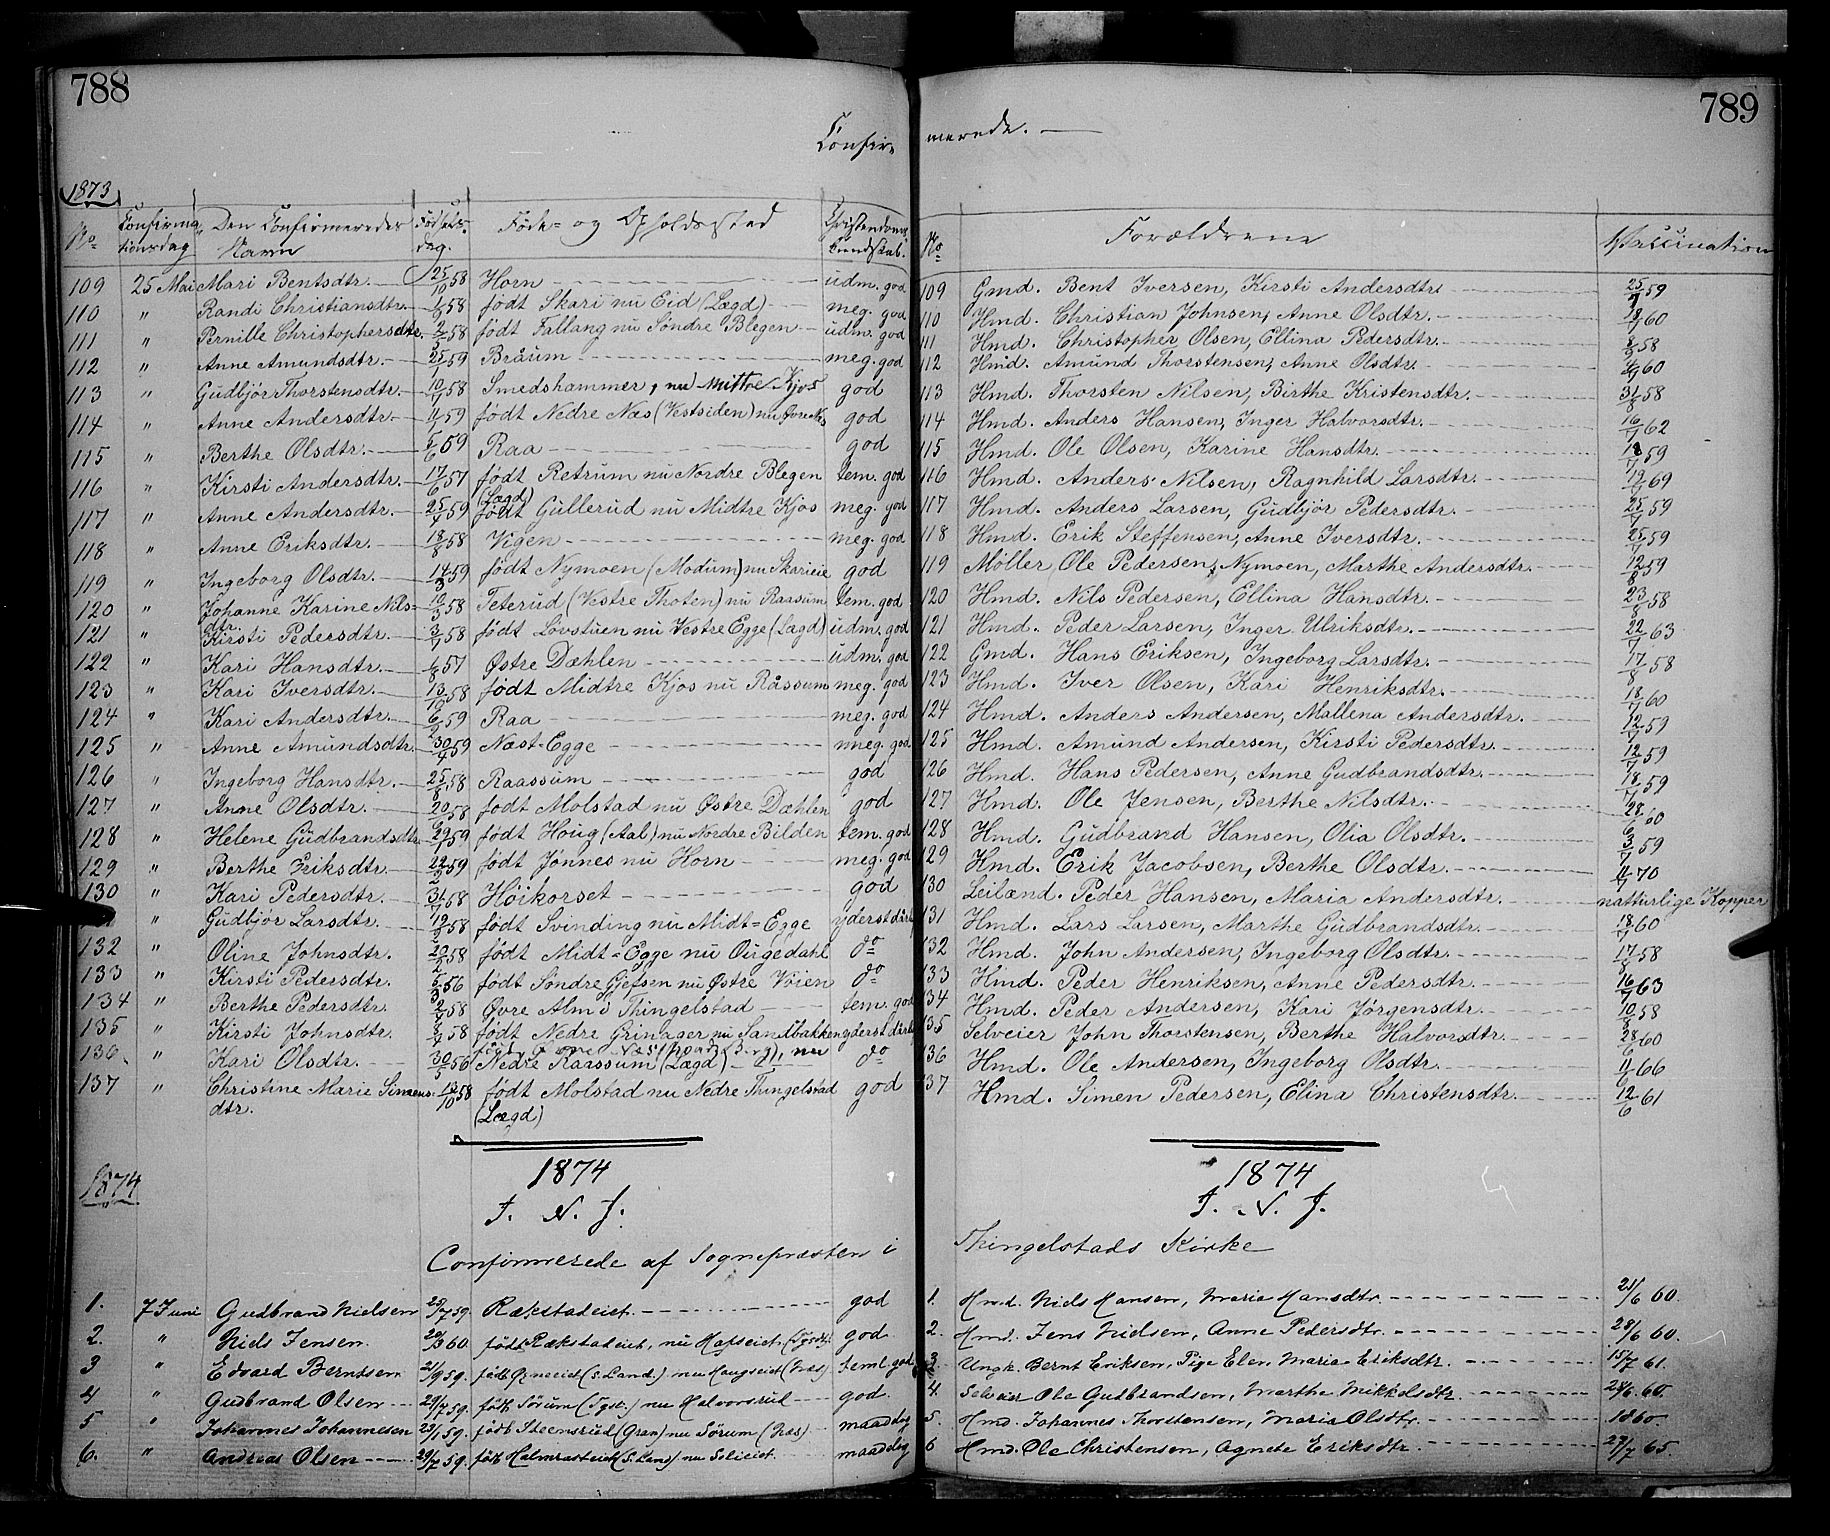 788
789
Confir-
merede. —
1873
No Confirmationsdag Den Confirmeredes Navn Fødselsdag. Føde- og Opholdssted Christendoms Kundskab. No Forældrene Vaccination
109 25 Mai Mari Bentsdtr. 25/10 58 Horn udm. god 109 Gmd. Bent Iversen, Kirsti Andersdtr. 25/7 59
110 " Randi Christiansdtr. 58 født Skari nu Eid (Lægd) meg. god 110 Hmd. Christian Johnsen, Anne Olsdtr. 60
111 " Pernille Christophersdtr. 58 født Fallang nu Søndre Blegen udm. god 111 Hmd. Christopher Olsen, Ellina Pedersdtr. 58
112 " Anne Amundsdtr. 59 Bråum meg. god 112 Hmd. Amund Thorstensen, Anne Olsdtr. 60
113 " Gudbjør Thorstensdtr. 58 Smedshammer, nu Mittre Kjos god 113 Hmd. Thorsten Nilsen, Birthe Kristensdtr. 31/8 58
114 " Anne Andersdtr. 59 født Nedre Næs (Vestsiden) nu Øvre Næs god 114 Hmd. Anders Hansen, Inger Halvorsdtr. 16/7 62
115 " Berthe Olsdtr. 59 Raa god 115 Hmd. Ole Olsen, Karine Hansdtr. 59
116 " Kirsti Andersdtr. 17/6 57 født Retrum nu Nordre Blegen (Lægd) tem. god 116 Hmd. Anders Nilsen, Ragnhild Larsdtr. 69
117 " Anne Andersdtr. 59 født Gullerud nu Midtre Kjos meg. god 117 Hmd. Anders Larsen, Gudbjør Pedersdtr. 25/7 59
118 " Anne Eriksdtr. 18/8 58 Vigen meg. god 118 Hmd. Erik Steffensen, Anne Iversdtr. 25/7 59
119 " Ingeborg Olsdtr. 14/3 59 født Nymoen (Modum) nu Skarieie god 119 Møller Ole Pedersen, Nymoen, Marthe Andersdtr. 12/8 59
120 " Johanne Karine Nilsdtr. 58 Teterud (Vestre Thoten) nu Raasum tem. god 120 Hmd. Nils Pedersen, Ellina Hansdtr. 23/8 58
121 " Kirsti Pedersdtr. 3/7 58 født Lovstuen nu Vestre Egge (Lægd) udm. god 121 Hmd. Peder Larsen, Inger Ulriksdtr. 22/7 63
122 " Kari Hansdtr. 57 Østre Dæhlen udm. god 122 Gmd. Hans Eriksen, Ingeborg Larsdtr. 17/8 58
123 " Kari Iversdtr. 13/10 58 født Midtre Kjos nu Råssum meg. god 123 Hmd. Iver Olsen, Kari Henriksdtr. 18/7 60
124 " Kari Andersdtr. 59 Raa meg. god 124 Hmd. Anders Andersen, Mallena Andersdtr. 12/7 59
125 " Anne Amundsdtr. 59 Næst-Egge meg. god 125 Hmd. Amund Andersen, Kirsti Pedersdtr. 12/7 59
126 " Ingeborg Hansdtr. 58 Raassum god 126 Hmd. Hans Pedersen, Anne Gudbrandsdtr. 18/7 59
127 " Anne Olsdtr. 58 født Molstad nu Østre Dæhlen god 127 Hmd. Ole Jensen, Berthe Nilsdtr. 28/6 60
128 " Helene Gudbrandsdtr. 59 født Houg (Aal) nu Nordre Bilden tem. god 128 Hmd. Gudbrand Hansen, Olia Olsdtr. 3/7 59
129 " Berthe Eriksdtr. 22/2 59 født Jønnes nu Horn meg. god 129 Hmd. Erik Jacobsen, Berthe Olsdtr. 70
130 " Kari Pedersdtr. 31/7 58 Höikorset god 130 Leilænd. Peder Hansen, Maria Andersdtr. natturlige Kopper
" Gudbjør Larsdtr. 58 født Svinding nu Midt-Egge yderst dårlig 131 Hmd. Lars Larsen, Marthe Gudbrandsdtr. 18/7 60
132 " Oline Johnsdtr. 58 født Midt-Egge nu Ourgedahl do 132 Hmd. John Andersen, Ingeborg Olsdtr. 17/8 58
133 " Kirsti Pedersdtr. 56 født Søndre Gjefsen nu Østre Vöien do 133 Hmd. Peder Henriksen, Anne Pedersdtr. 16/7 63
134 " Berthe Pedersdtr. 58 Øvre Alm i Thingelstad tem. god 134 Hmd. Peder Andersen, Kari Jørgensdtr. 10/8 58
135 " Kirsti Johnsdtr. 58 født Nedre Grinager nu Sandbakken yderst dårlig 135 Selveier John Thorstensen, Berthe Halvorsdtr. 28/6 60
136 " Kari Olsdtr. 30/5 56 nu Nedre Raassum (Lægd) do 136 Hmd. Ole Andersen, Ingeborg Olsdtr. 11/6 66
137 " Christine Marie Simensdtr. 13/10 58 født Molstad nu Nedre Thingelstad (Lægd) god 137 Hmd. Simen Pedersen, Elina Christensdtr. 12/6 61
1874
1874
I. N. J.
1874
I. N. J.
Confirmerede af Sognepræsten i Thingelstads Kirke
1. 7 Juni Gudbrand Nielsen 25/7 59. Rækstadeiet god 1. Hmd. Niels Hansen, Maria Hansdtr. 21/6 60.
2. " Niels Jensen 60. født Rækstadeiet, nu Hafseiet god 2. Hmd. Jens Nielsen, Anne Pedersdtr. 28/6 60.
3 " Edvard Berntsen 21/9 59. født (S. Land) nu Haugseiet (Næs) teml. god 3. Ungk. Bernt Eriksen, Pige Elen Maria Eriksdtr. 15/7 61.
4 " Gudbrand Olsen 59. født Sørum nu Halvorsrud god 4. Selveier Ole Gudbrandsen, Marthe Mikkelsdtr. 24/6 60.
5 " Johannes Johannesen 23/1 59. født Steensrud (Gran) nu Sørum (Næs) maadelig 5. Hmd. Johannes Thorstensen, Maria Olsdtr. 1860.
6. " Andreas Olsen 29/7 59. født (S. Land) nu maadelig 6 Hmd. Ole Christensen, Agnete Eriksdtr. 27/7 65.